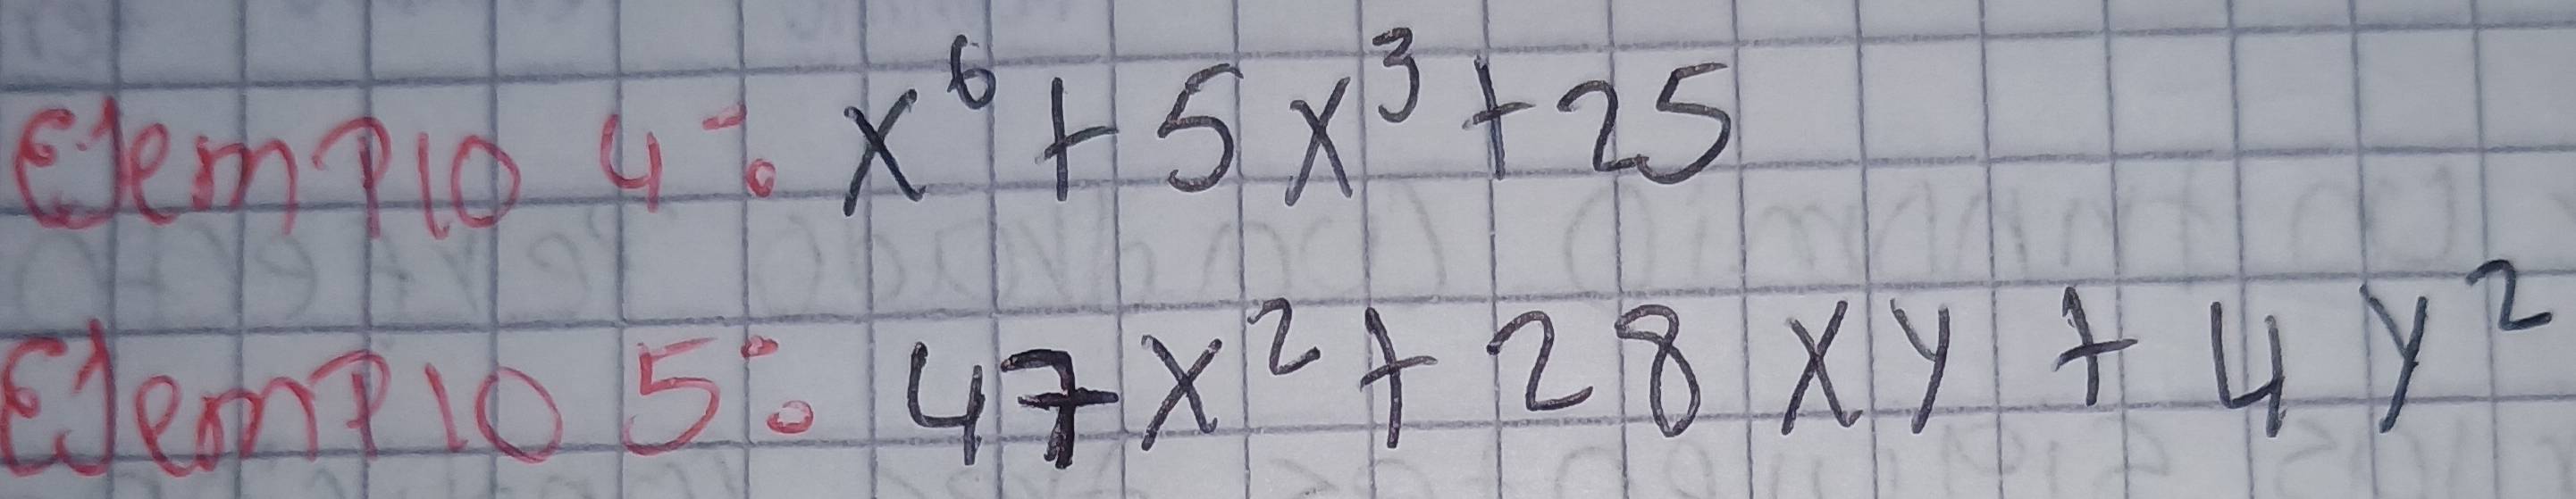 Ejemplo 4: x⁶ + 5x³ + 25
Ejemplo 5: 47x² + 28xy + 4y²